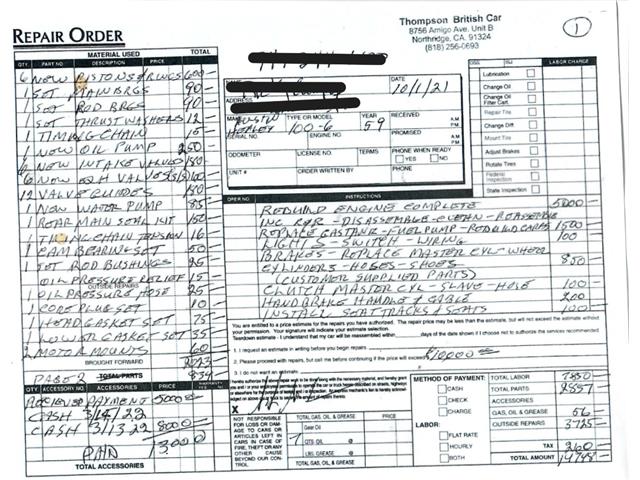 REPAIR ORDER
Thompson British Car
8756 Amigo Ave, Unit B
Northridge, CA. 91324
(818) 256-0693
1
MATERIAL USED
QTY. PART NO. DESCRIPTION PRICE TOTAL
6 NEW PISTONS & RINGS 600 —
1 SET MAIN BRGS 90 —
1 SET ROD BRGS 90 —
1 SET THRUST WASHERS 12 —
1 TIMING CHAIN 15
1 NEW OIL PUMP 250 —
6 NEW INTAKE VALVES 180
6 NEW EXH VALVES
12 VALVE GUIDES 180
1 NEW WATER PUMP 85
1 REAR MAIN SEAL KIT 150
TIMING CHAIN TENSION 16
1 CAM BEARING SET 50
1 SET ROD BUSHINGS 95
OIL PRESSURE RELIEF 15 —
OUTSIDE REPAIRS
1 OIL PRESSURE HOSE 25
1 CORE PLUG SET 10
1 HEAD GASKET SET 75
1 LOWER GASKET SET 35
2 MOTOR MOUNTS 60
BROUGHT FORWARD
PAGE 2 TOTAL PARTS 834
QTY. ACCESSORY NO. ACCESSORIES PRICE
RECIEVED PAYMENT 5000 —
CASH 3/14/22
CASH 3/13/22 8000 —
PAID 13,000
TOTAL ACCESSORIES
DATE
10/1/21
ADDRESS
AUSTIN HEALEY
TYPE OR MODEL
100-6
YEAR
59
RECEIVED A.M. P.M.
SERIAL NO. ENGINE NO. PROMISED A.M. P.M.
ODOMETER LICENSE NO. TERMS PHONE WHEN READY
YES NO
UNIT # ORDER WRITTEN BY PHONE
LABOR CHARGE
Lubrication
Change Oil
Change Oil Filter Cart.
Repair Tire
Change Diff
Mount Tire
Adjust Brakes
Rotate Tires
Federal Inspection
State Inspection
OPER NO. INSTRUCTIONS
REBUILD ENGINE COMPLETE 5000 —
INC R&R - DISASSEMBLE - CLEAN - REASSEMBLE
REPLACE GAS TANK - FUEL PUMP - REBUILD CARBS 1500
LIGHTS - SWITCH - WIRING 100
BRAKES - REPLACE MASTER CYL - WHEEL
CYLINDERS - HOSES - SHOES 850
(CUSTOMER SUPPLIED PARTS)
CLUTCH MASTER CYL - SLAVE - HOLE 100
HANDBRAKE HANDLE & CABLE 200
INSTALL SEAT TRACKS & SEATS 100
You are entitled to a price estimate for the repairs you have authorized. The repair price may be less than the estimate, but will not exceed the estimate without your permission. Your signature will indicate your estimate selection.
1. I request an estimate in writing before you begin repairs
2. Please proceed with repairs, but call me before continuing if the price will exceed $ 10000 —
3. I do not want an estimate
X
NOT RESPONSIBLE FOR LOSS OR DAMAGE TO CARS OR ARTICLES LEFT IN CARS IN CASE OF FIRE, THEFT OR ANY OTHER CAUSE BEYOND OUR CONTROL.
TOTAL GAS, OIL & GREASE
Gear Oil
7 QTS. OIL
LBS. GREASE
TOTAL GAS, OIL & GREASE
METHOD OF PAYMENT:
CASH
CHECK
CHARGE
LABOR:
FLAT RATE
HOURLY
BOTH
TOTAL LABOR 7850
TOTAL PARTS 2857
ACCESSORIES
GAS, OIL & GREASE 56
OUTSIDE REPAIRS 3725
TAX 260 —
TOTAL AMOUNT 14748 —